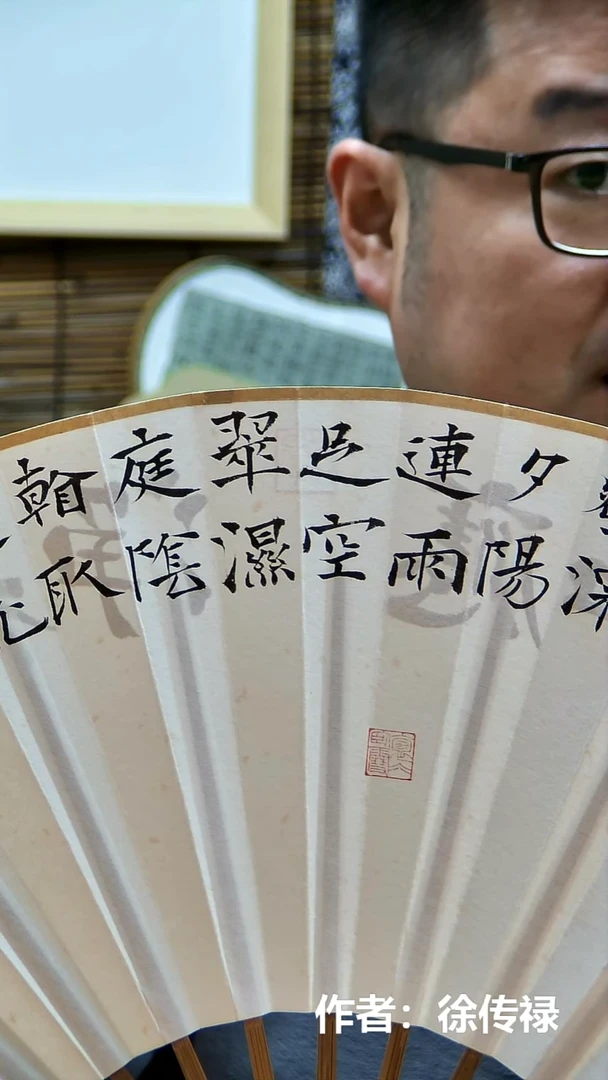 深
夕陽
連雨
足空
翠濕
庭陰
取
作者：徐传禄